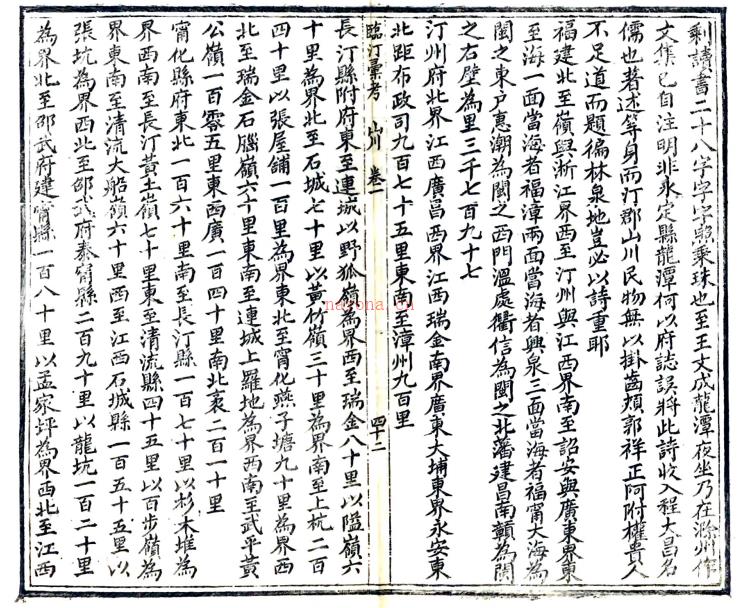 剩讀書二十八字字字照乘珠也至王文成龍潭夜坐乃在滁州作
文集已自注明非永定縣龍潭何以府誌誤將此詩收入程大昌名
儒也著述等身而汀郡山川民物無以掛齒頰郭祥正阿附權貴人
不足道而題徧林泉地豈必以詩重耶
福建北至嶺與浙江界西至汀州與江西界南至詔安與廣東界東
至海一面當海者福漳兩面當海者興泉三面當海者福甯大海為
閩之東戶惠潮為閩之西門溫處衢信為閩之北藩建昌南贛為閩
之右壁為里三千七百九十七
汀州府北界江西廣昌西界江西瑞金南界廣東大埔東界永安東
北距布政司九百七十五里東至至漳州九百里
臨汀彙考 山川 卷一 四十二
長汀縣附府東至連城以野狐嶺為界西至瑞金八十里以隘嶺六
十里為界北至石城七十里以黃竹嶺三十里為界南至上杭二百
四十里以張屋舖一百里為界東北至甯化燕子塘九十里為界西
北至瑞金石腦嶺六十里東南至連城上羅地為界西南至武平黃
公嶺一百零五里東西廣一百四十里南北袤二百一十里
甯化縣府東北一百六十里南至長汀縣一百七十里以杉木堆為
界西南至長汀黃土嶺七十里東至清流縣四十五里以百步嶺為
界東南至清流大船嶺六十里西至江西石城縣一百五十五里以
張坑為界西北至邵武府泰甯縣二百九十里以龍坑一百二十里
為界北至邵武府建甯縣一百八十里以孟家坪為界西北至江西
nayona.cn